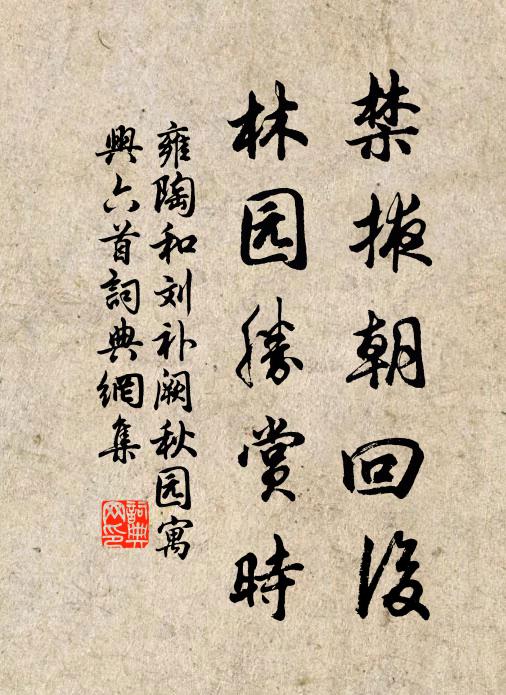 禁掖朝回後
林园勝賞時
雍陶和刘补阙秋园寓
興六首詞典網集
詞典網印